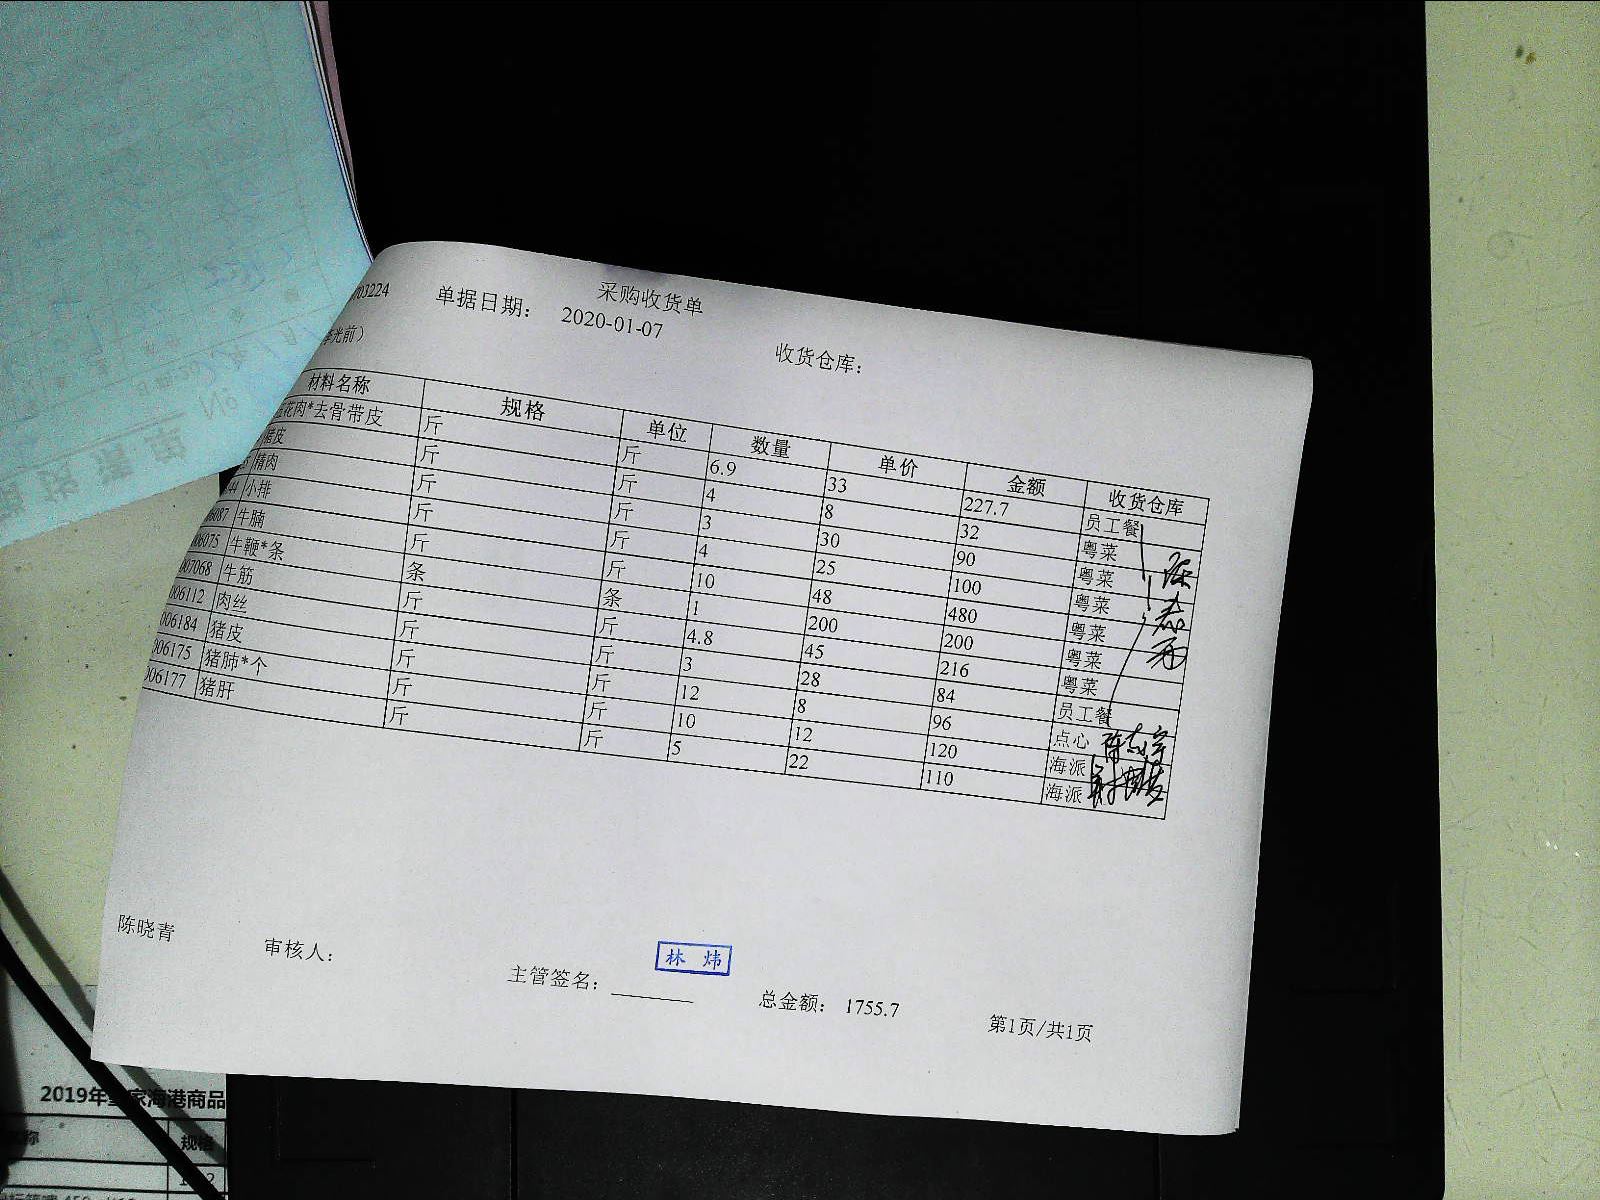 采购收货单
03224 单据日期： 2020-01-07
光前） 收货仓库：
材料名称 规格 单位 数量 单价 金额 收货仓库
花肉*去骨带皮 斤 斤 6.9 33 227.7 员工餐
猪皮 斤 斤 4 8 32 粤菜
精肉 斤 斤 3 30 90 粤菜
小排 斤 斤 4 25 100 粤菜
087 牛腩 斤 斤 10 48 480 粤菜
06075 牛鞭*条 条 条 1 200 200 粤菜
007068 牛筋 斤 斤 4.8 45 216 粤菜
006112 肉丝 斤 斤 3 28 84 员工餐
006184 猪皮 斤 斤 12 8 96 点心
006175 猪肺*个 斤 斤 10 12 120 海派
006177 猪肝 斤 斤 5 22 110 海派
陈晓青 审核人： 主管签名： 林 炜 总金额： 1755.7 第1页/共1页
2019年 家海港商品
称 规格